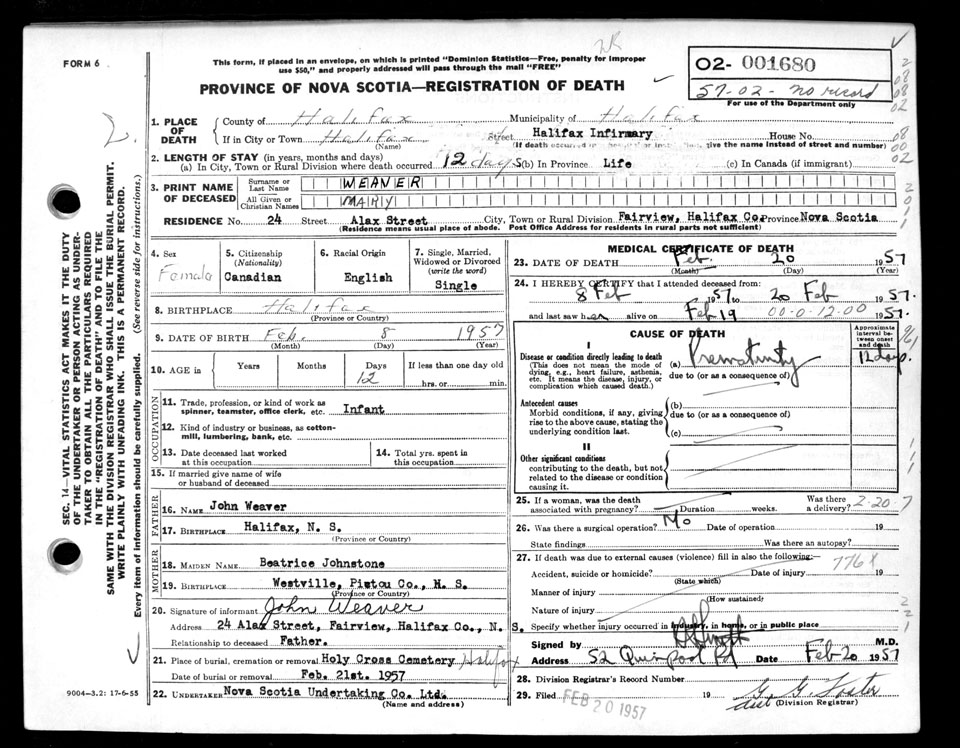 FORM 6
This form, if placed in an envelope, on which is printed "Dominion Statistics—Free, penalty for improper
use $50," and properly addressed will pass through the mail "FREE"
PROVINCE OF NOVA SCOTIA—REGISTRATION OF DEATH
02- 001680
57-02- no record
For use of the Department only
1. PLACE OF DEATH
County of Halifax Municipality of Halifax
If in City or Town Halifax Street Halifax Infirmary House No.
(Name) (If death occurred in a hospital or institution, give the name instead of street and number)
2. LENGTH OF STAY (in years, months and days)
(a) In City, Town or Rural Division where death occurred 12 days (b) In Province Life (c) In Canada (if immigrant)
3. PRINT NAME OF DECEASED
Surname or Last Name WEAVER
All Given or Christian Names MARY
RESIDENCE No. 24 Street Alax Street City, Town or Rural Division Fairview, Halifax Co. Province Nova Scotia
(Residence means usual place of abode. Post Office Address for residents in rural parts not sufficient)
4. Sex Female
5. Citizenship (Nationality) Canadian
6. Racial Origin English
7. Single, Married, Widowed or Divorced (write the word) Single
8. BIRTHPLACE Halifax
(Province or Country)
9. DATE OF BIRTH Feb. 8 1957
(Month) (Day) (Year)
10. AGE in Years Months Days 12 If less than one day old
hrs. or min.
OCCUPATION
11. Trade, profession, or kind of work as
spinner, teamster, office clerk, etc. Infant
12. Kind of industry or business, as cotton-
mill, lumbering, bank, etc.
13. Date deceased last worked
at this occupation
14. Total yrs. spent in
this occupation
15. If married give name of wife
or husband of deceased
FATHER
16. NAME John Weaver
17. BIRTHPLACE Halifax, N. S.
(Province or Country)
MOTHER
18. MAIDEN NAME Beatrice Johnstone
19. BIRTHPLACE Westville, Pictou Co., N. S.
(Province or Country)
20. Signature of informant John Weaver
Address 24 Alax Street, Fairview, Halifax Co., N. S.
Relationship to deceased Father.
21. Place of burial, cremation or removal Holy Cross Cemetery Halifax
Date of burial or removal Feb. 21st. 1957
22. UNDERTAKER Nova Scotia Undertaking Co. Ltd.
(Name and address)
MEDICAL CERTIFICATE OF DEATH
23. DATE OF DEATH Feb. 20 1957
(Month) (Day) (Year)
24. I HEREBY CERTIFY that I attended deceased from:
8 Feb 1957 to 20 Feb 1957.
and last saw her alive on Feb 19 00-0-12-00 1957.
CAUSE OF DEATH
Approximate interval between onset and death
I
Disease or condition directly leading to death
(This does not mean the mode of
dying, e.g., heart failure, asthenia,
etc. It means the disease, injury, or
complication which caused death.)
(a) Prematurity 12 days.
due to (or as a consequence of)
Antecedent causes
Morbid conditions, if any, giving
rise to the above cause, stating the
underlying condition last.
(b)
due to (or as a consequence of)
(c)
II
Other significant conditions
contributing to the death, but not
related to the disease or condition
causing it.
25. If a woman, was the death
associated with pregnancy? Duration weeks. Was there a delivery? 2-20-7
26. Was there a surgical operation? No Date of operation 19
State findings Was there an autopsy?
27. If death was due to external causes (violence) fill in also the following:
Accident, suicide or homicide? Date of injury 19
776X
(State which)
Manner of injury
(How sustained)
Nature of injury
Specify whether injury occurred in industry, in home, or in public place
Signed by M.D.
Address 52 Quinpool Rd Date Feb 20 1957
28. Division Registrar's Record Number
29. Filed FEB 20 1957 19 G. G. Foster
dist (Division Registrar)
SEC. 14—VITAL STATISTICS ACT MAKES IT THE DUTY
OF THE UNDERTAKER OR PERSON ACTING AS UNDER-
TAKER TO OBTAIN ALL THE PARTICULARS REQUIRED
IN THE "REGISTRATION OF DEATH" AND TO FILE THE
SAME WITH THE DIVISION REGISTRAR WHO SHALL ISSUE THE BURIAL PERMIT.
WRITE PLAINLY WITH UNFADING INK. THIS IS A PERMANENT RECORD.
Every item of information should be carefully supplied. (See reverse side for instructions.)
9004-3.2: 17-6-55